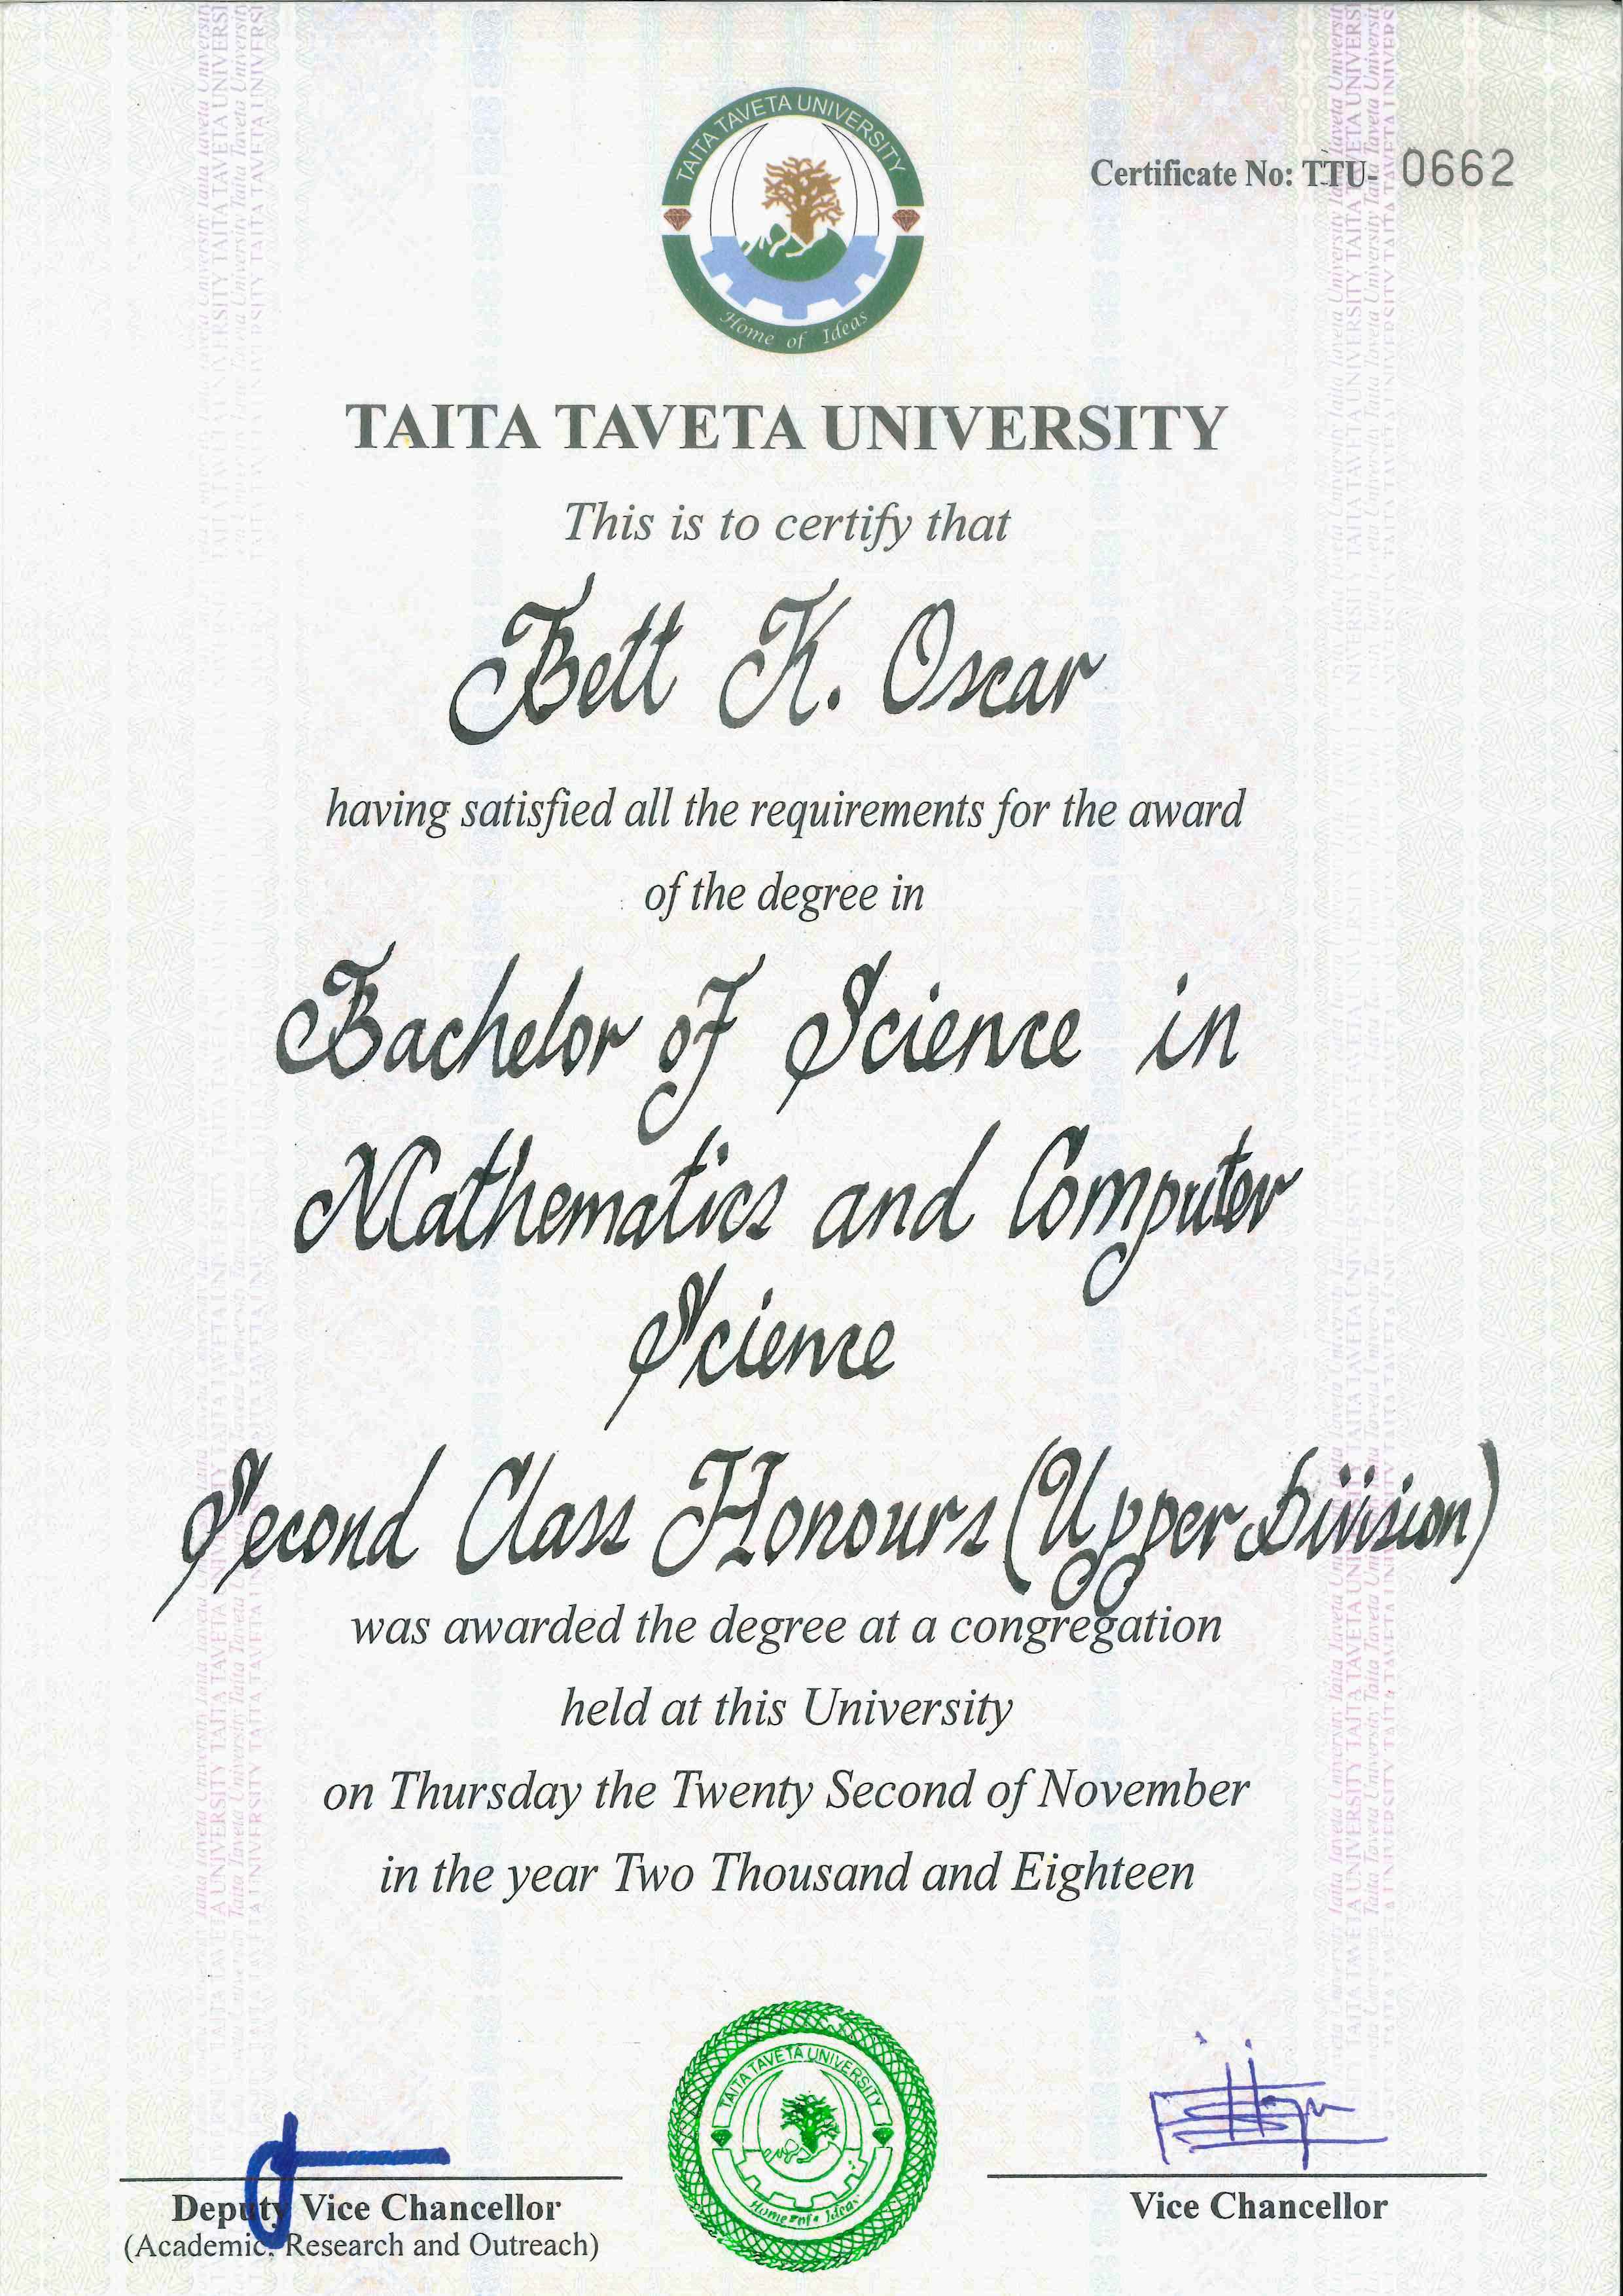 TAITA TAVETA UNIVERSITY
Home of Ideas
Certificate No: TTU- 0662
TAITA TAVETA UNIVERSITY
This is to certify that
Bett K. Oscar
having satisfied all the requirements for the award
of the degree in
Bachelor of Science in
Mathematics and Computer
Science
Second Class Honours (Upper Division)
was awarded the degree at a congregation
held at this University
on Thursday the Twenty Second of November
in the year Two Thousand and Eighteen
TAITA TAVETA UNIVERSITY
Home of Ideas
Deputy Vice Chancellor
(Academic, Research and Outreach)
Vice Chancellor